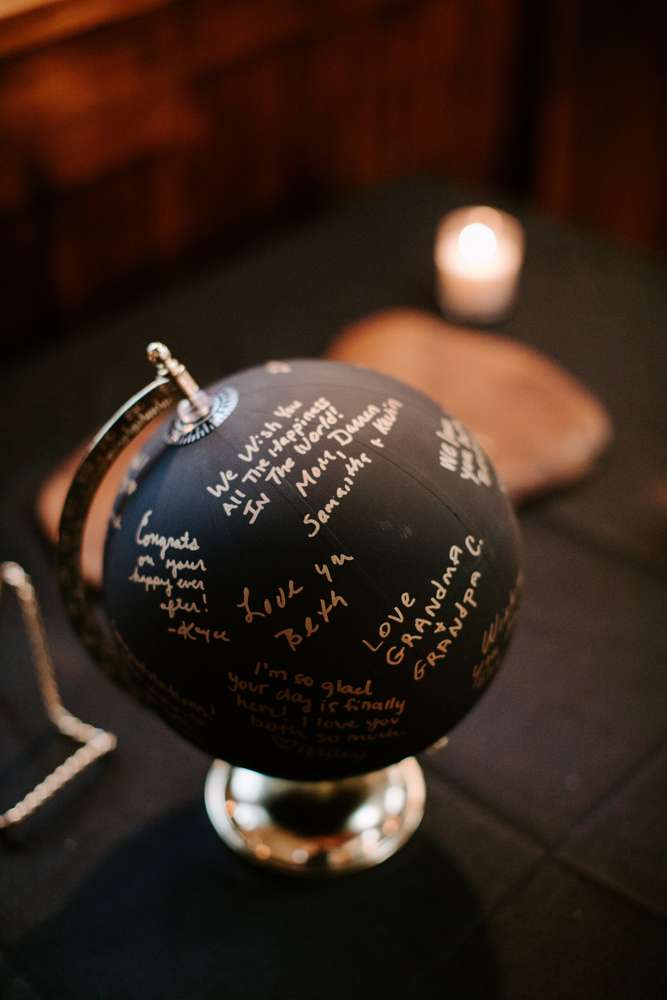 We Wish You
All The Happiness
IN The World!
Mom, Darren
Samantha + Kevin
Congrats
on your
happy ever
after!
-Kayce
Love you
Beth
LOVE
GRANDMA
+
GRANDPA C.
I'm so glad
your day is finally
here! I love you
both so much.